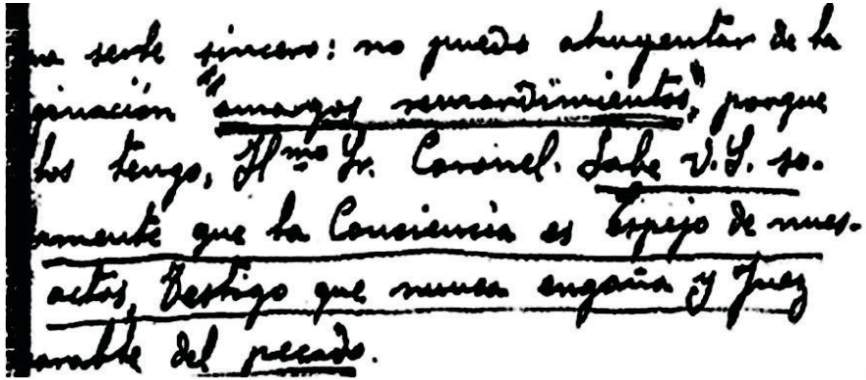 serle sincero: no puedo ahuyentar de la
ginación "amargos remordimientos," porque
los tengo, Ilmo Sr. Coronel. Sabe V.S. so-
amente que la Conciencia es Espejo de nues-
actos, Testigo que nunca engaña y Juez
del pecado.